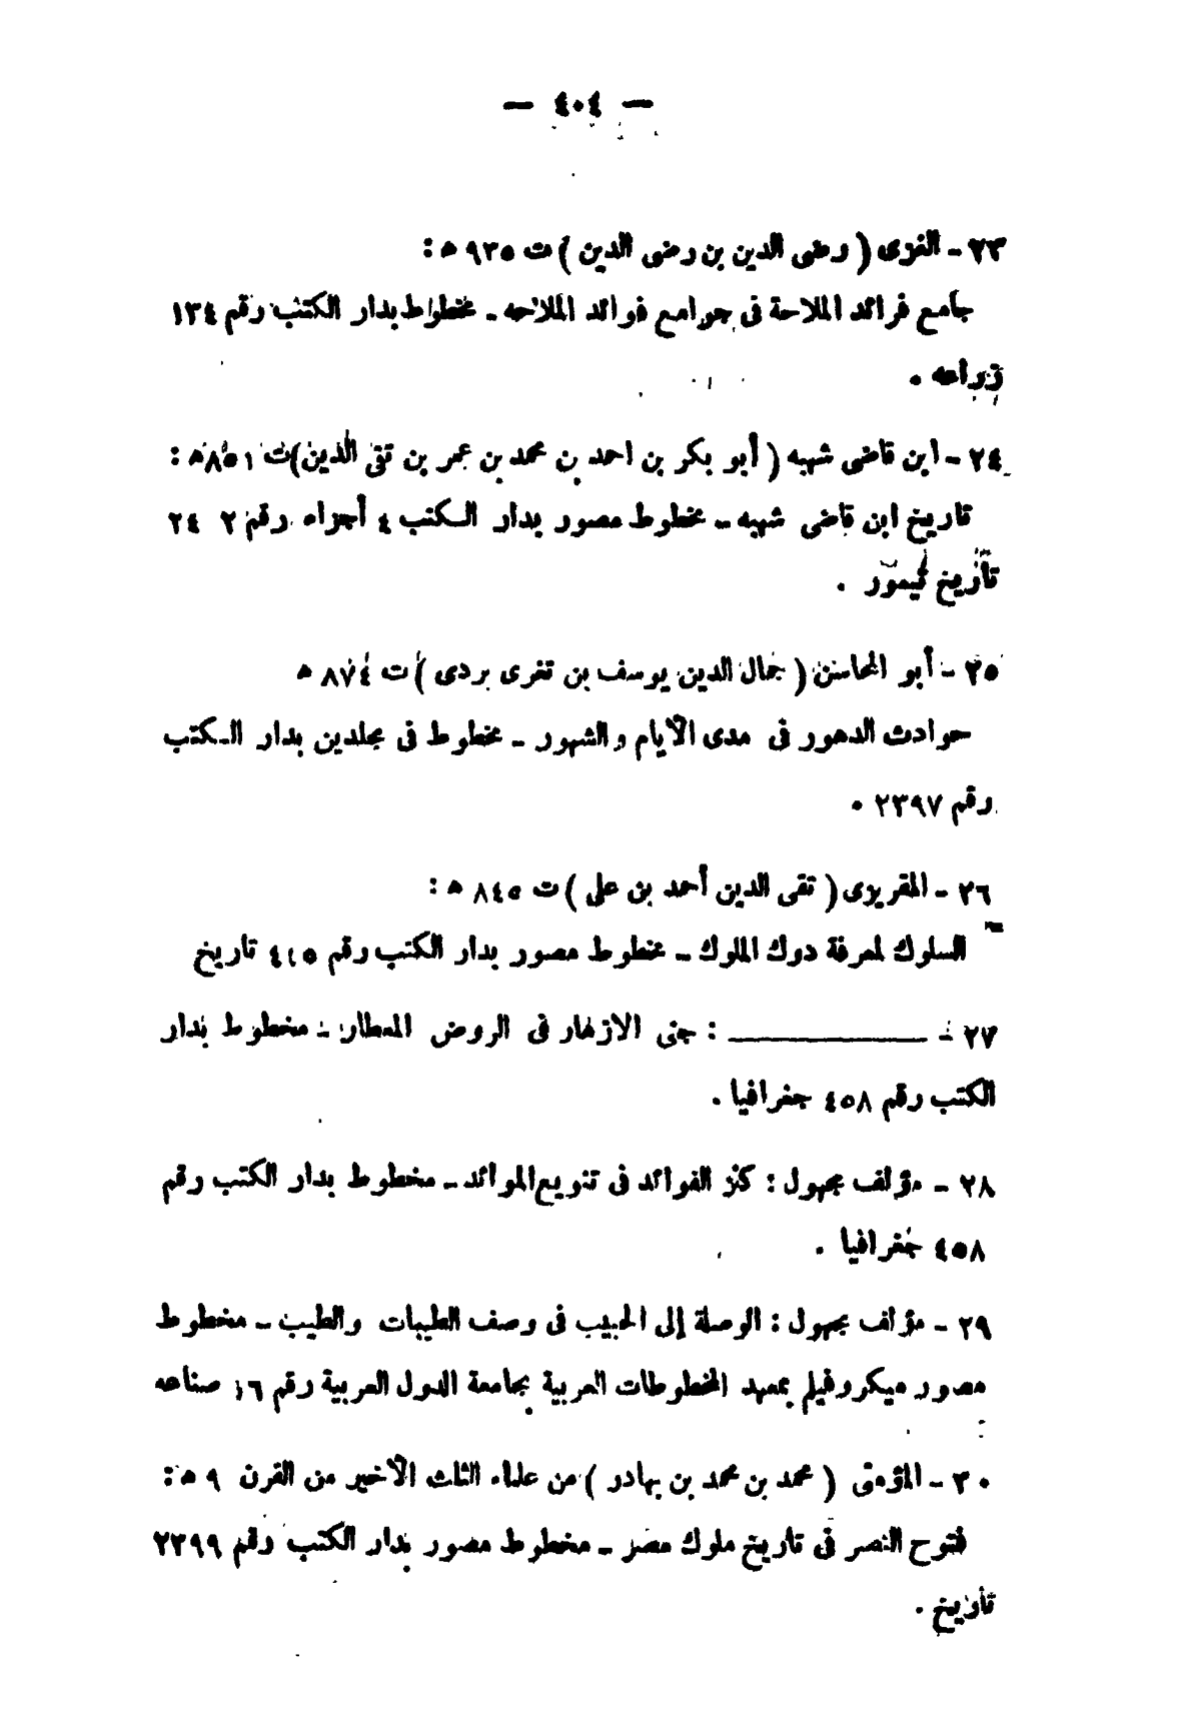 — ٤٠٤ —
٢٣ - الغزى ( رضى الدين بن رضى الدين ) ت ٩٣٥ ه :
جامع فرائد الملاحة فى جوامع فوائد الملاحه - مخطوط بدار الكتب رقم ١٣٤
زراعه .
٢٤ - ابن قاضى شهبه ( أبو بكر بن احمد بن محمد بن عمر بن تقى الدين ) ت ٨٥١ ه :
تاريخ ابن قاضى شهبه - مخطوط مصور بدار الكتب ٤ أجزاء رقم ٢ ٢٤
تاريخ تيمور .
٢٥ - أبو المحاسن ( جمال الدين يوسف بن تغرى بردى ) ت ٨٧٤ ه
حوادث الدهور فى مدى الأيام والشهور - مخطوط فى مجلدين بدار الكتب
رقم ٢٣٩٧ .
٢٦ - المقريزى ( تقى الدين أحمد بن على ) ت ٨٤٥ ه :
السلوك لمعرفة دوك الملوك - مخطوط مصور بدار الكتب رقم تاريخ
٢٧ - ــــــــــــــ : جنى الازهار فى الروض المعطار - مخطوط بدار
الكتب رقم ٤٥٨ جغرافيا .
٢٨ - مؤلف مجهول : كنز الفوائد فى تنويع الموائد - مخطوط بدار الكتب رقم
٤٥٨ جغرافيا .
٢٩ - مؤلف مجهول : الوصلة إلى الحبيب فى وصف الطيبات والطيب - مخطوط
مصور ميكروفيلم بمعهد المخطوطات العربية بجامعة الدول العربية رقم ١٦ صناعه
٣٠ - المؤمنى ( محمد بن محمد بن بهادر ) من علماء الثلث الأخير من القرن ٩ ه :
فتوح النصر فى تاريخ ملوك مصر - مخطوط مصور بدار الكتب رقم ٢٣٩٩
تاريخ .